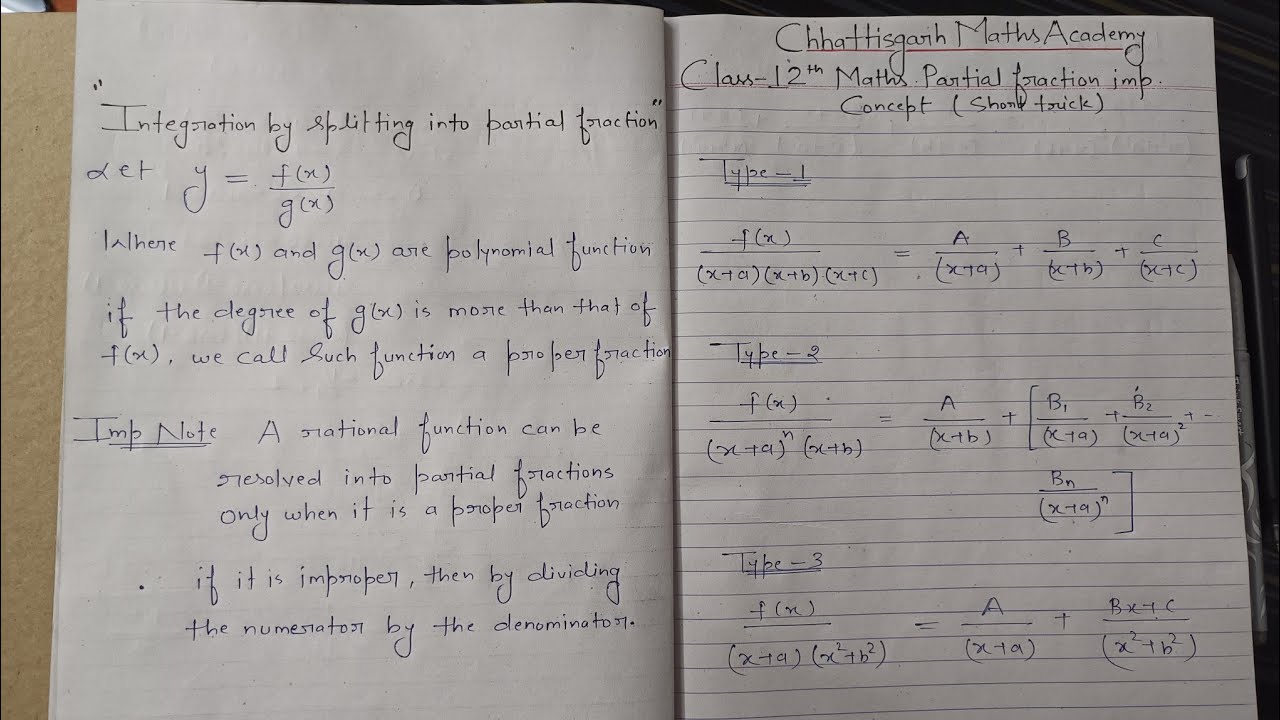 "Integration by splitting into partial fraction"
Let y = f(x)/g(x)
Where f(x) and g(x) are polynomial function
if the degree of g(x) is more than that of
f(x), we call Such function a proper fraction
Imp Note A rational function can be
resolved into partial fractions
only when it is a proper fraction
. if it is improper, then by dividing
the numerator by the denominator.
Chhattisgarh Maths Academy
Class-12th Maths Partial fraction imp.
Concept (Short trick)
Type-1
f(x)/(x+a)(x+b)(x+c) = A/(x+a) + B/(x+b) + C/(x+c)
Type-2
f(x)/(x+a)^n (x+b) = A/(x+b) + [B1/(x+a) + B2/(x+a)^2 + --
Bn/(x+a)^n]
Type-3
f(x)/(x+a)(x^2+b^2) = A/(x+a) + Bx+C/(x^2+b^2)